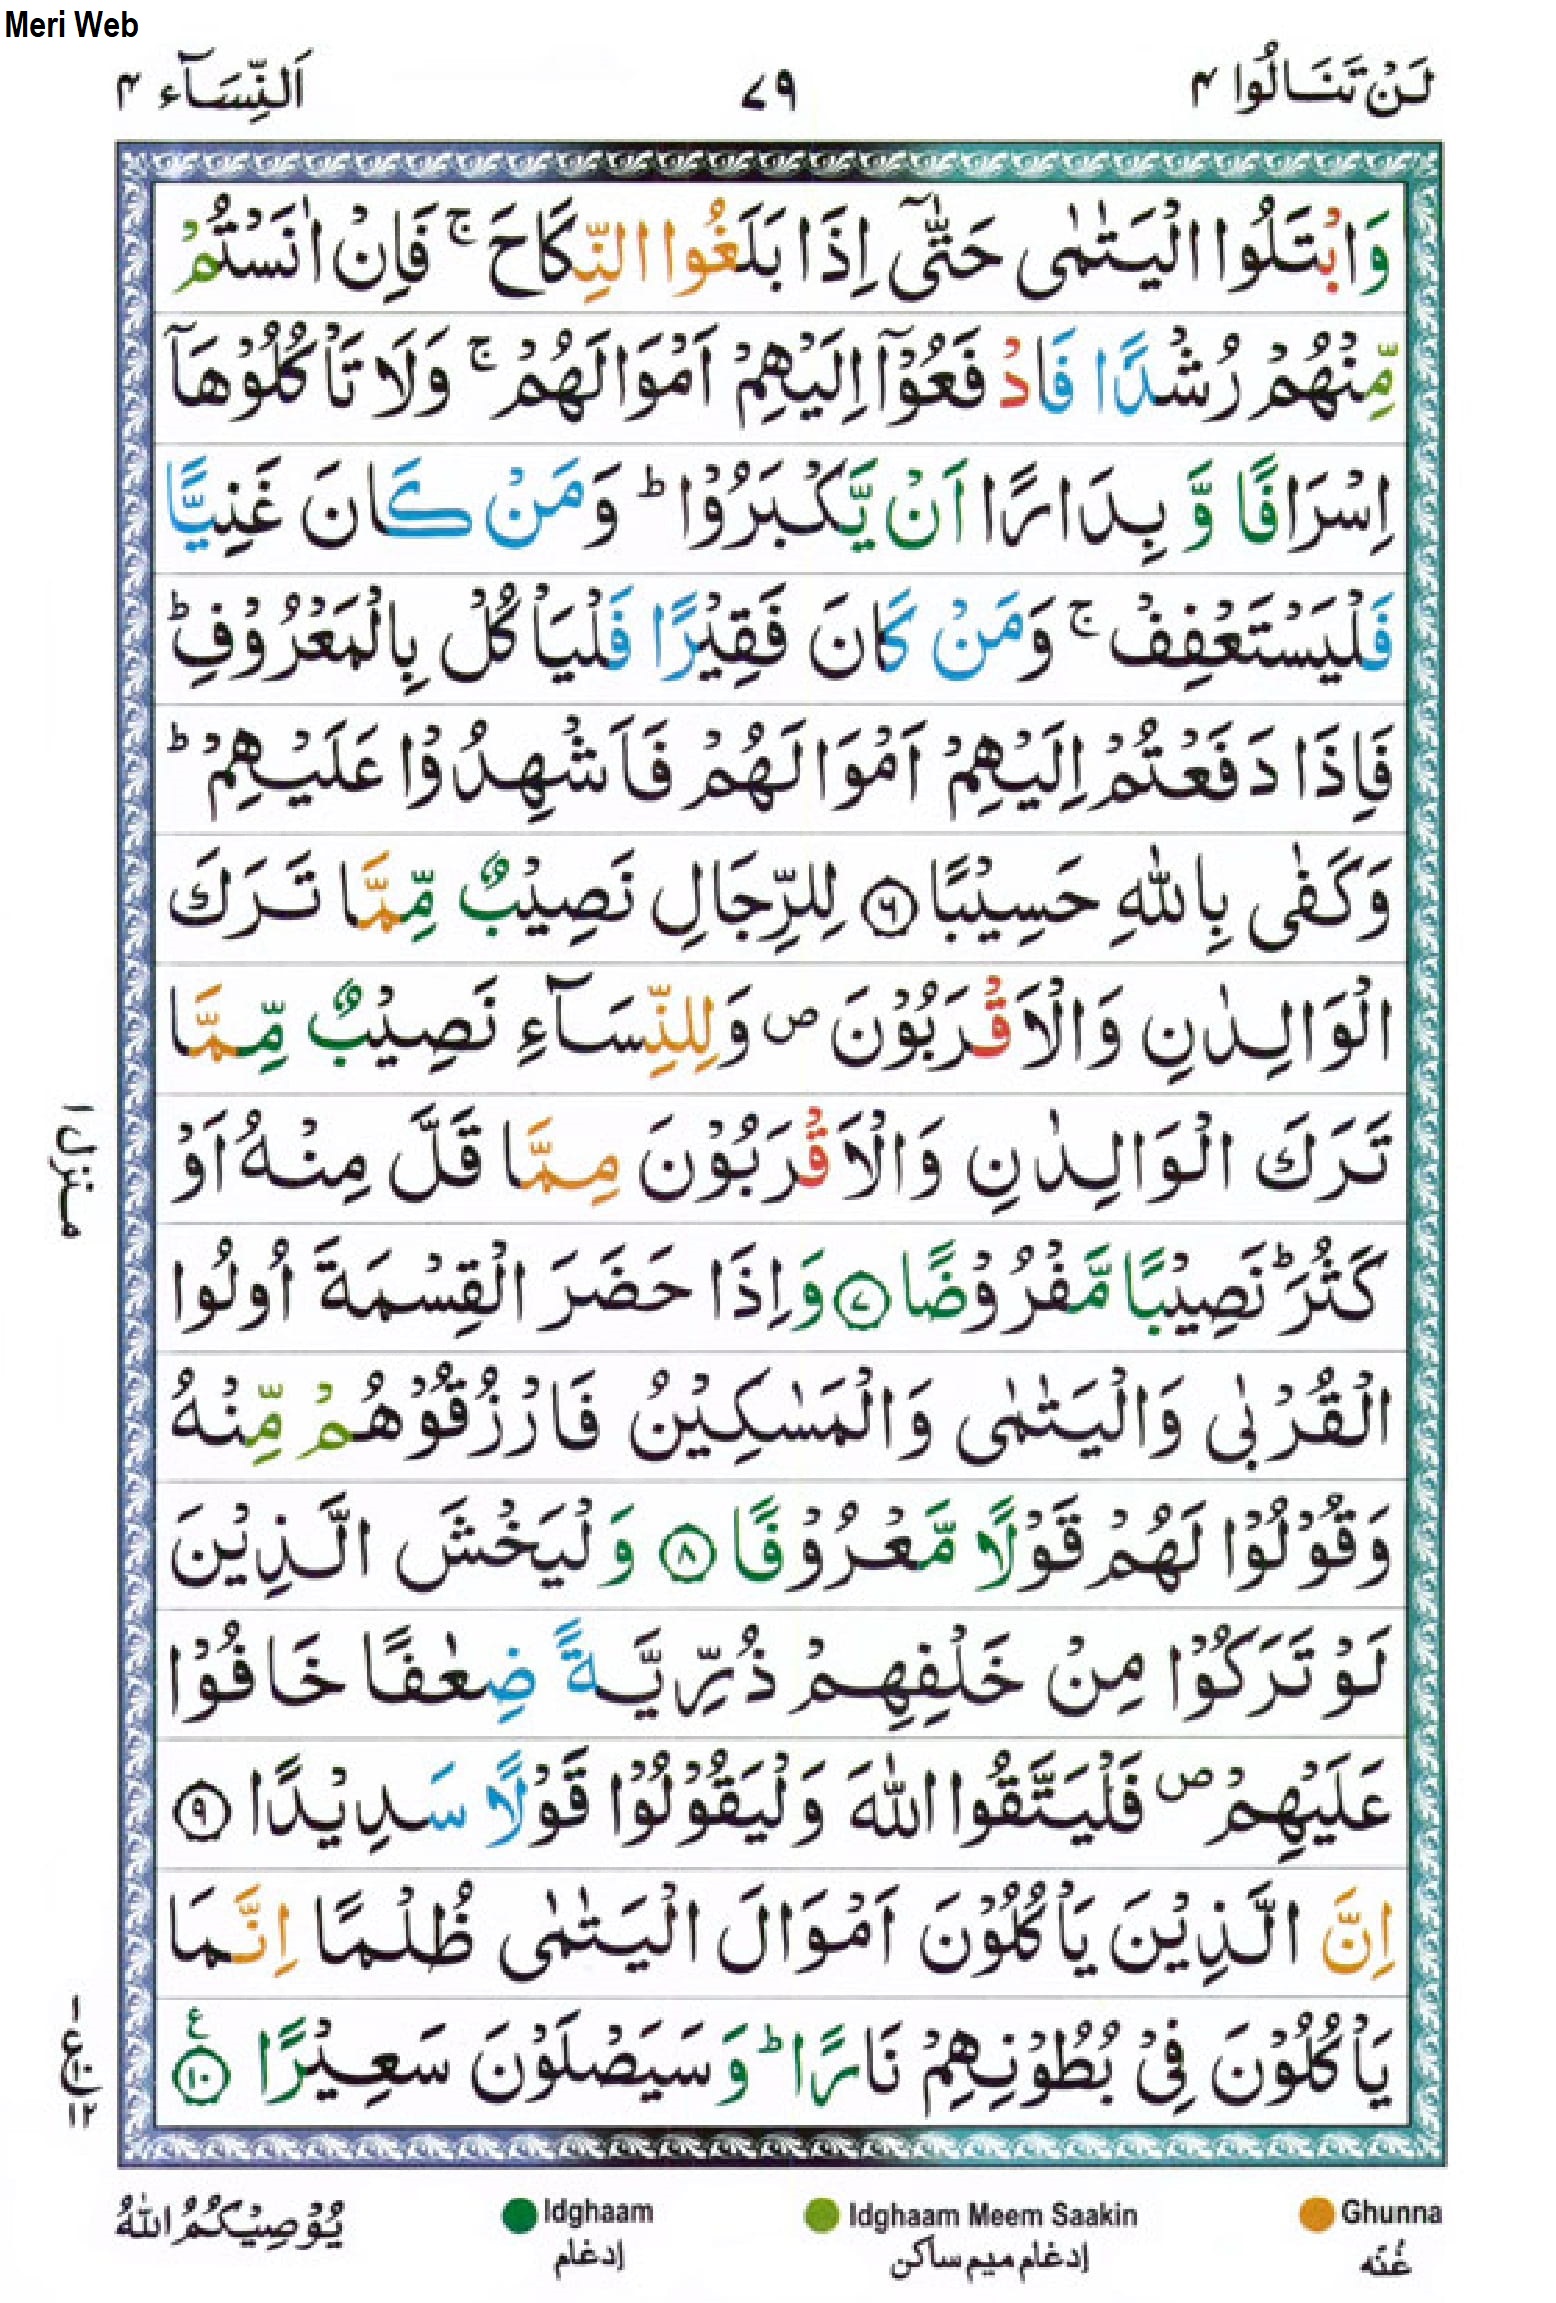 Meri Web
لَنْ تَنَالُوا ۴
۷۹
اَلنِّسَآء ۴
وَابْتَلُوا الْيَتٰمٰى حَتّٰٓى اِذَا بَلَغُوا النِّكَاحَ ۚ فَاِنْ اٰنَسْتُمْ
مِّنْهُمْ رُشْدًا فَادْفَعُوْٓا اِلَيْهِمْ اَمْوَالَهُمْ ۚ وَلَا تَاْكُلُوْهَاۤ
اِسْرَافًا وَّ بِدَارًا اَنْ يَّكْبَرُوْا ؕ وَمَنْ كَانَ غَنِيًّا
فَلْيَسْتَعْفِفْ ۚ وَمَنْ كَانَ فَقِيْرًا فَلْيَاْكُلْ بِالْمَعْرُوْفِ ؕ
فَاِذَا دَفَعْتُمْ اِلَيْهِمْ اَمْوَالَهُمْ فَاَشْهِدُوْا عَلَيْهِمْ ؕ
وَكَفٰى بِاللّٰهِ حَسِيْبًا ۶ لِلرِّجَالِ نَصِيْبٌ مِّمَّا تَرَكَ
الْوَالِدٰنِ وَالْاَقْرَبُوْنَ ص وَلِلنِّسَآءِ نَصِيْبٌ مِّمَّا
تَرَكَ الْوَالِدٰنِ وَالْاَقْرَبُوْنَ مِمَّا قَلَّ مِنْهُ اَوْ
كَثُرَ ؕ نَصِيْبًا مَّفْرُوْضًا ۷ وَاِذَا حَضَرَ الْقِسْمَةَ اُولُوا
الْقُرْبٰى وَالْيَتٰمٰى وَالْمَسٰكِيْنُ فَارْزُقُوْهُمْ مِّنْهُ
وَقُوْلُوْا لَهُمْ قَوْلًا مَّعْرُوْفًا ۸ وَلْيَخْشَ الَّذِيْنَ
لَوْ تَرَكُوْا مِنْ خَلْفِهِمْ ذُرِّيَّةً ضِعٰفًا خَافُوْا
عَلَيْهِمْ ص فَلْيَتَّقُوا اللّٰهَ وَلْيَقُوْلُوْا قَوْلًا سَدِيْدًا ۹
اِنَّ الَّذِيْنَ يَاْكُلُوْنَ اَمْوَالَ الْيَتٰمٰى ظُلْمًا اِنَّمَا
يَاْكُلُوْنَ فِيْ بُطُوْنِهِمْ نَارًا ؕ وَسَيَصْلَوْنَ سَعِيْرًا ۱۰ ع
منزل ۱
۱
ع
۱۲
يُوْصِيْكُمُ اللّٰهُ
Idghaam
إدغام
Idghaam Meem Saakin
إدغام ميم ساكن
Ghunna
غُنّه